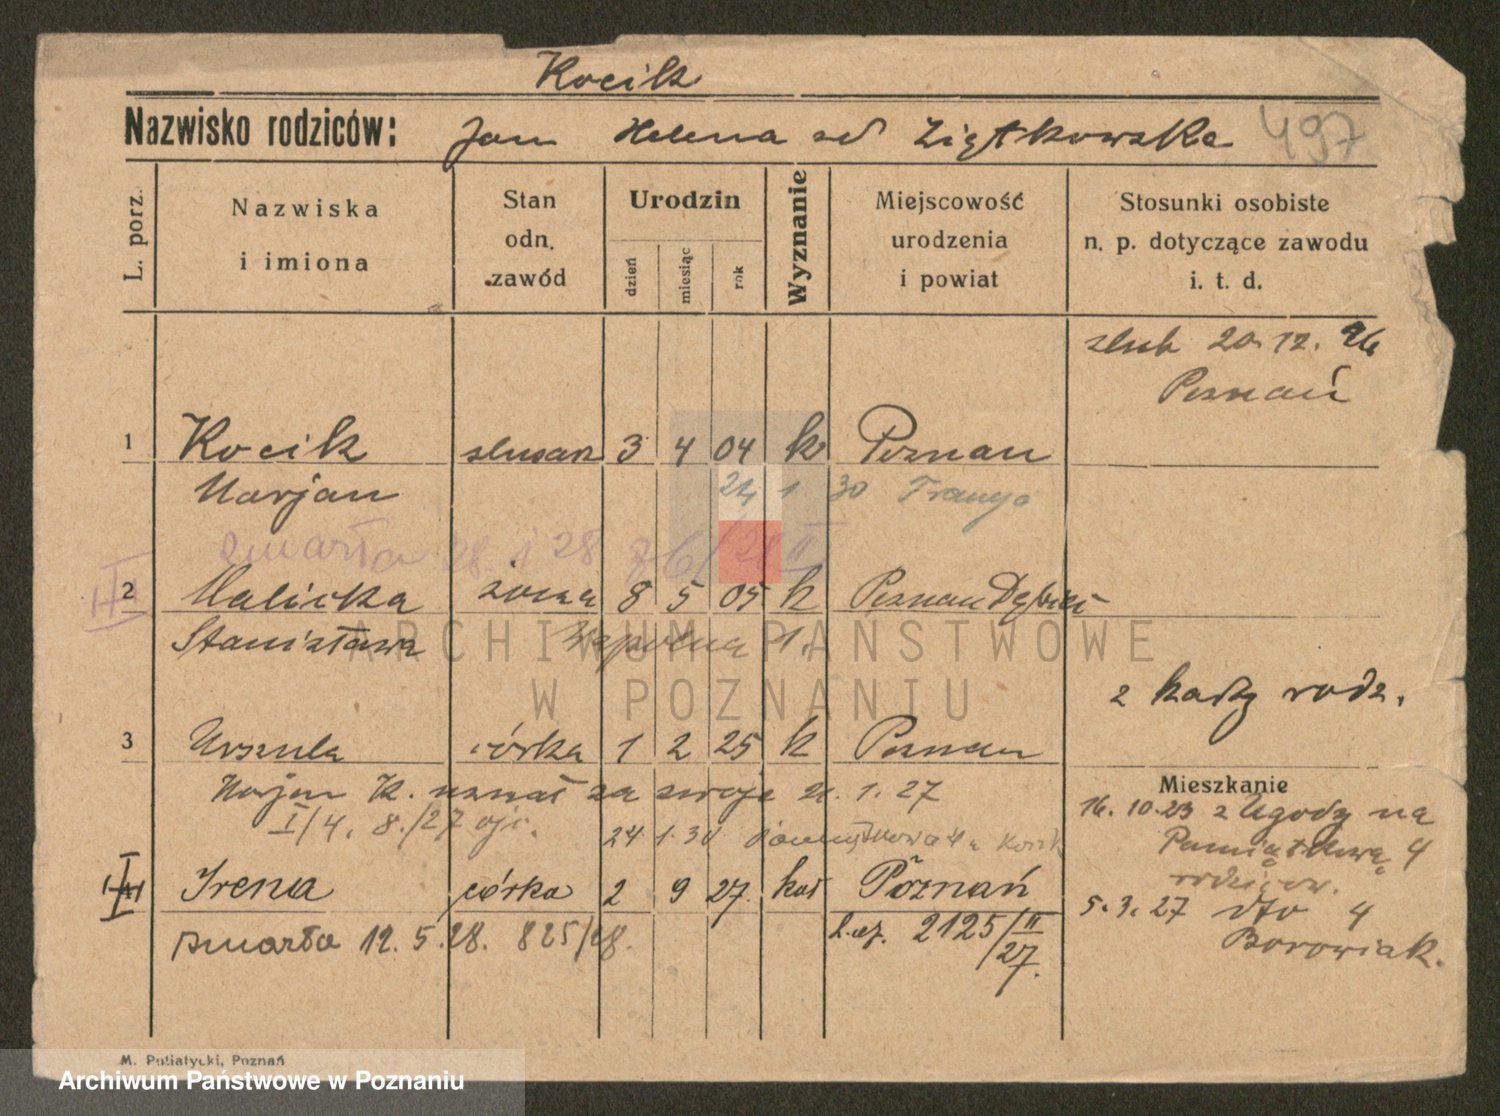 Kocik
Nazwisko rodziców: Jan Helena Ziętkowska 497
L. porz.
Nazwiska
i imiona
Stan
odn.
zawód
Urodzin
dzień
miesiąc
rok
Wyznanie
Miejscowość
urodzenia
i powiat
Stosunki osobiste
n. p. dotyczące zawodu
i. t. d.
slub 20. 12. 26
Poznań
1 Kocik slusarz 3 4 04 k Poznan
Marjan 24 1 30
zmarła 28. 1 28 86/28 II
2 Malicka żona 8 5 05 k Poznan Dębiec
Stanisława Wspolna 1.
ARCHIWUM PAŃSTWOWE
W POZNANIU
z rodz.
3 Urszula córka 1 2 25 k Poznan
Marjan K. uznał za swoje 1. 27
I/4. 8./27
24 1. 30
Mieszkanie
16. 10. 23 z Ugody na
Pamiątkową 4
rodziców.
Irena córka 2 9 27. kat Poznań
5. 3. 27 dto 4
Borowiak.
zmarła 12. 5. 28. 825/28. 2125/II
/27.
M. Putiatycki, Poznań
Archiwum Państwowe w Poznaniu